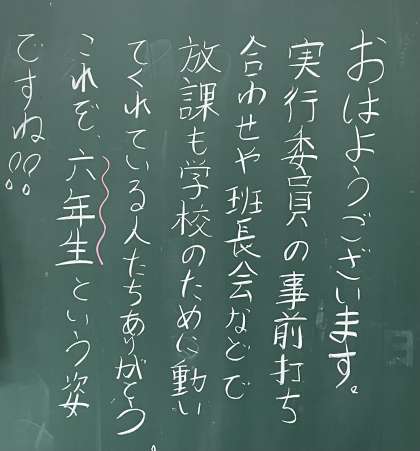 おはようございます。
実行委員の事前打ち
合わせや班長会などで
放課も学校のために動い
てくれている人たちありがとう
これぞ、六年生という姿
ですね!!